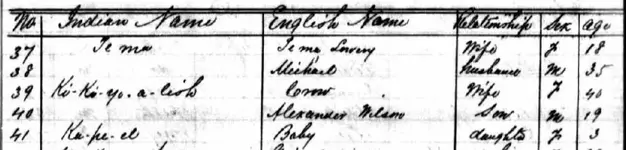 No. Indian Name English Name Relationship Sex Age
37 Te ma Tema Wife F 18
38 Michael husband M 35
39 Ki-Ki-yo-a-lish Wife F 40
40 Alexander Wilson Son M 19
41 Ka-pe-el Baby daughter F 3